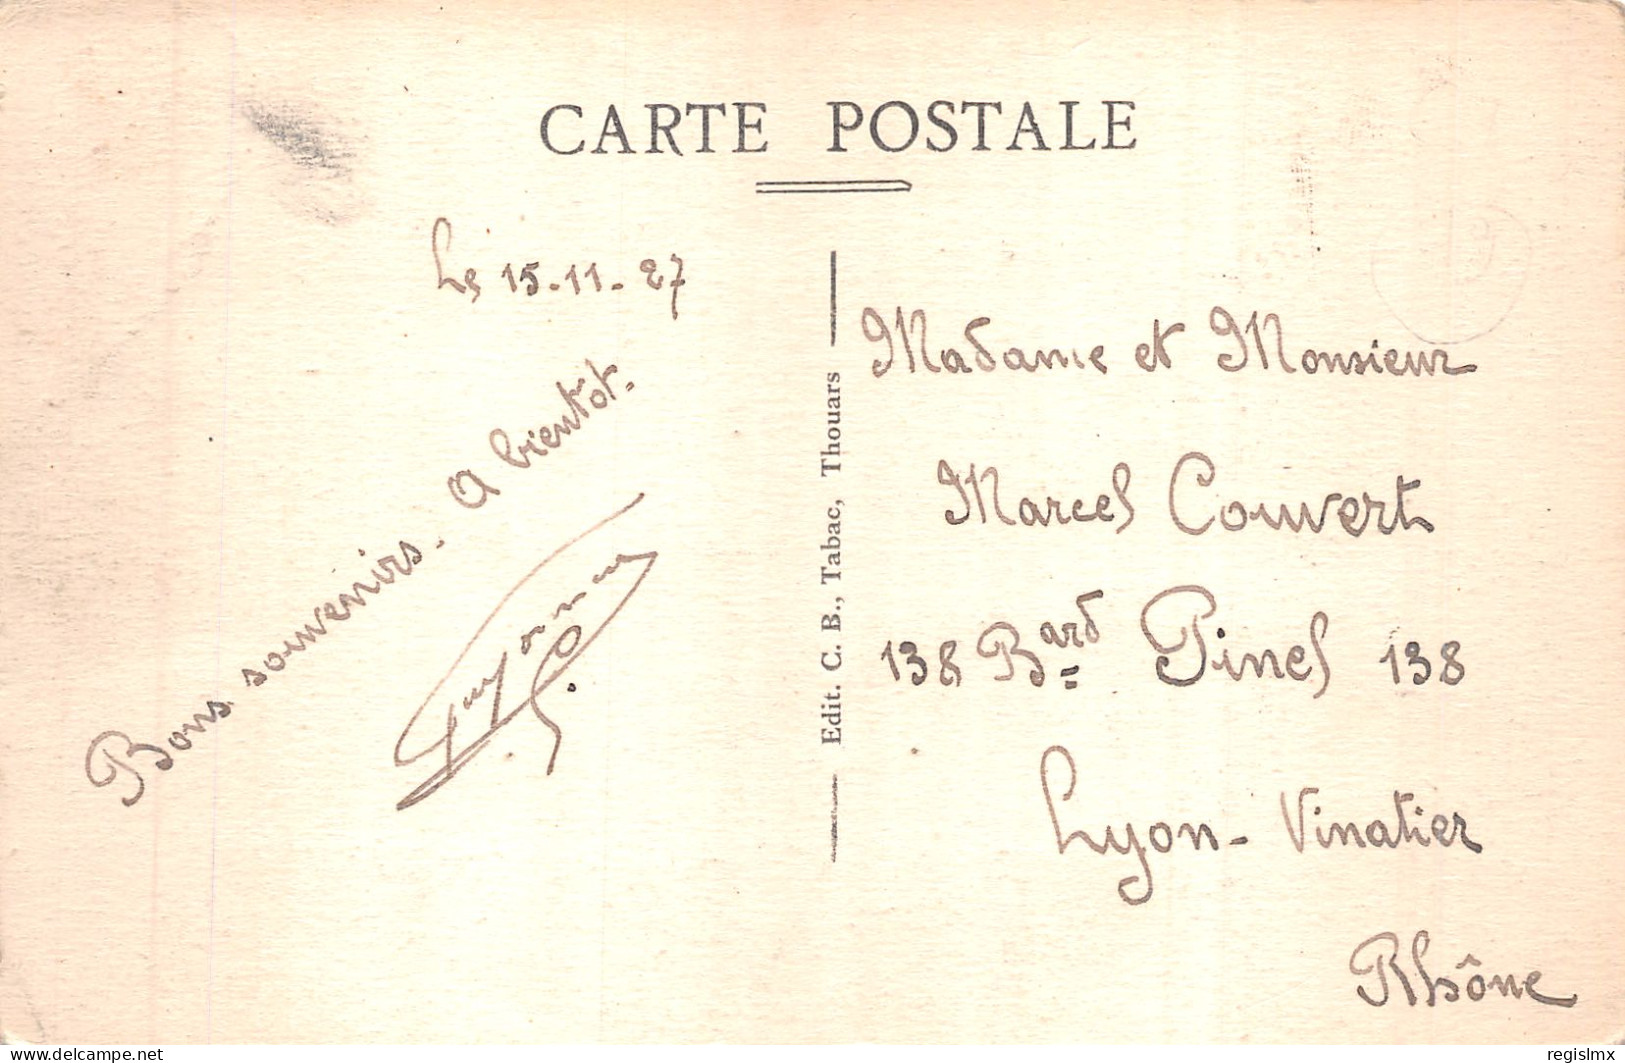 CARTE POSTALE
Le 15-11-27
Bons souvenirs. A bientot.
Edit. C. B., Tabac, Thouars
Madame et Monsieur
Marcel Couvert
138 Bard Pinel 138
Lyon-Vinatier
Rhône
delcampe.net
regislmx